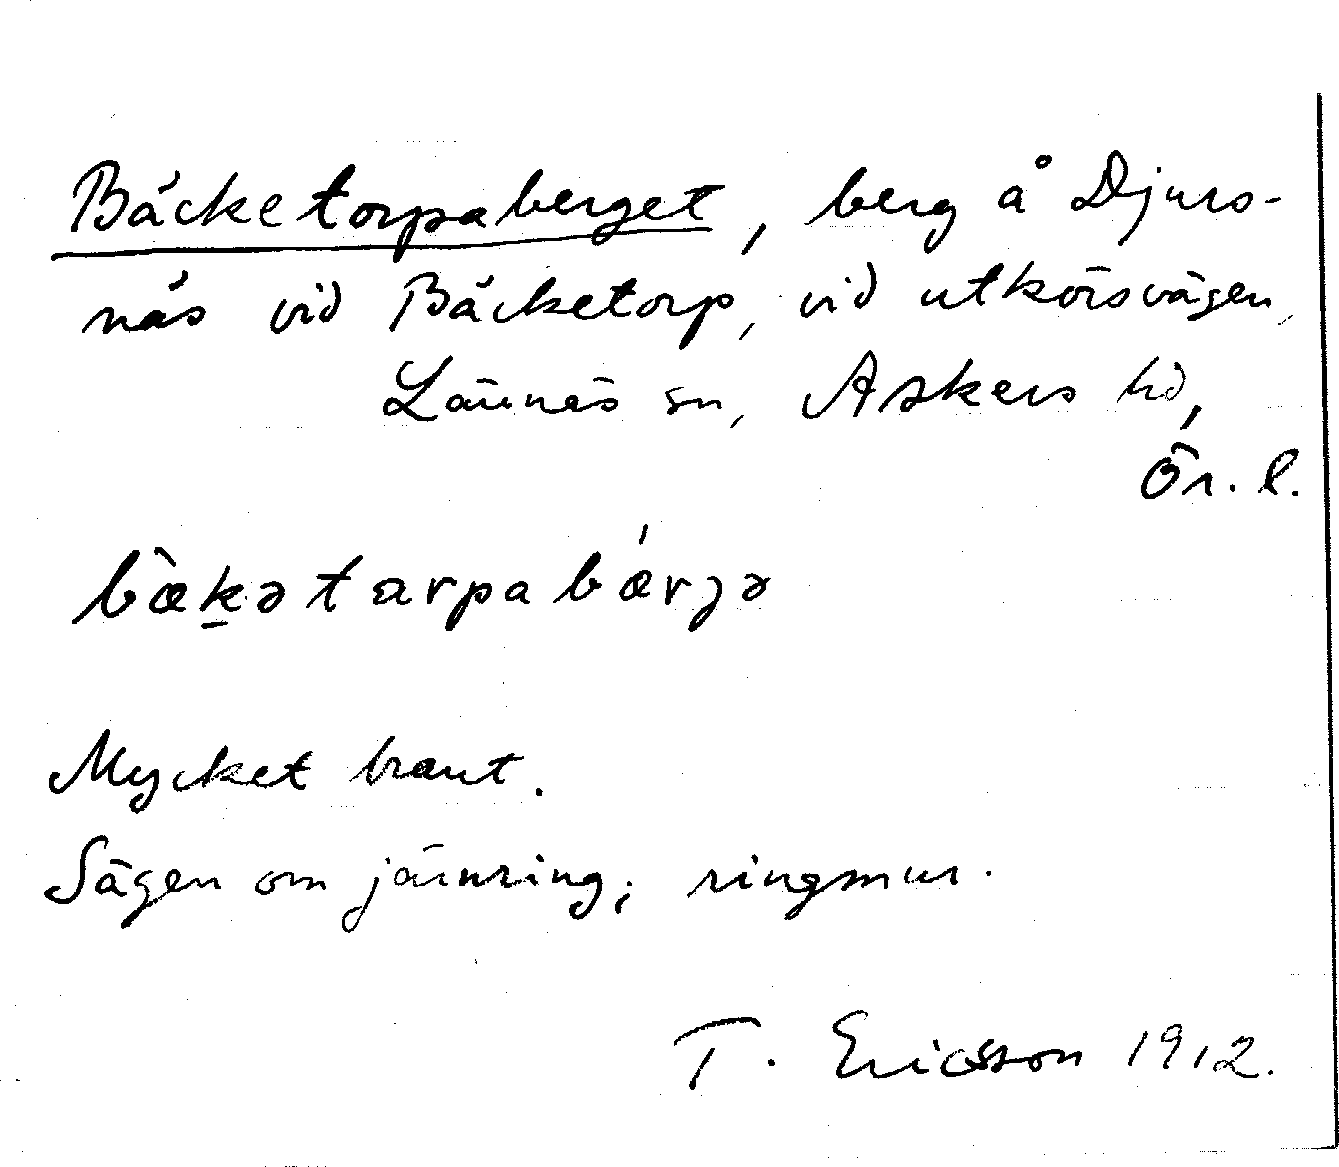 Bäcketorpaberget, berg å Djurs-
näs vid Bäcketorp, vid utkörsvägen,
Lännäs sn, Askers hd,
Ör. l.
bæ̀k̠ətarpabǽrjə
Mycket brant.
Sägen om järnring; ringmur.
T. Ericsson 1912.